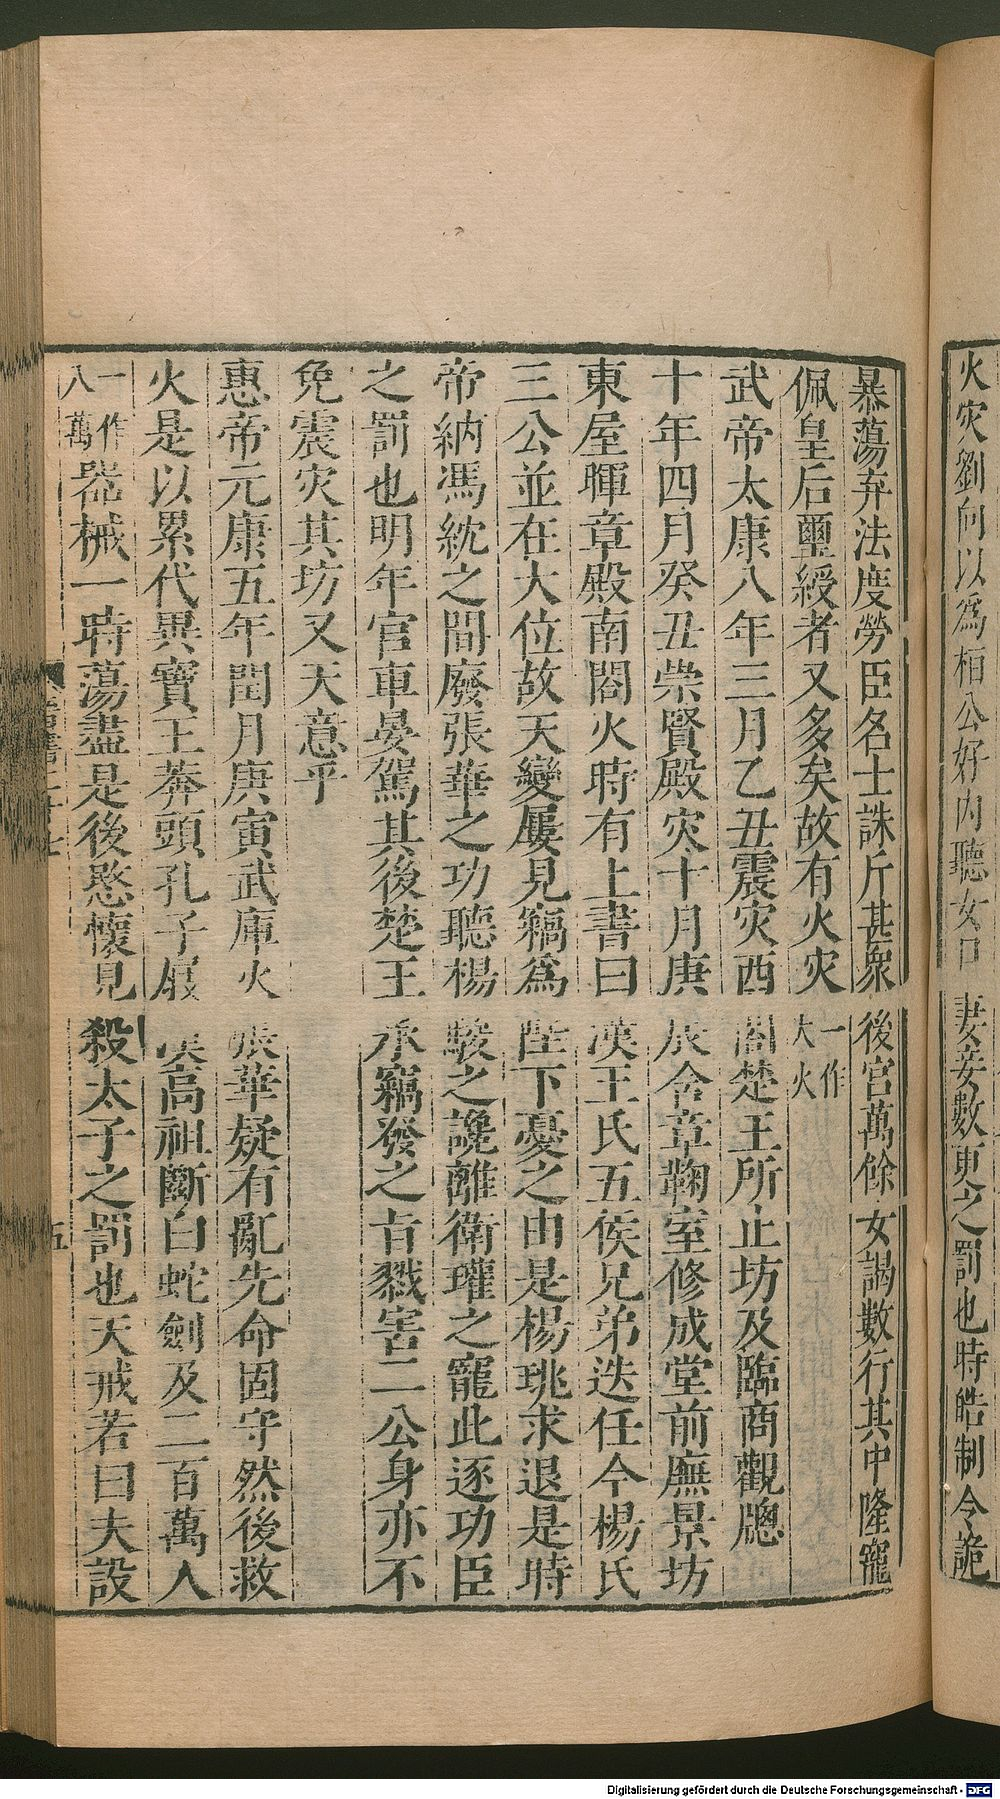 火灾劉向以爲桓公好內聽女口妻妾數更之罰也時皓制令詭
暴蕩弃法度勞臣名士誅斥甚衆後宮萬餘女謁數行其中隆寵
佩皇后璽綬者又多矣故有火灾一作大火
武帝太康八年三月乙丑震灾西閣楚王所止坊及臨商觀牕
十年四月癸丑崇賢殿灾十月庚辰含章鞠室修成堂前廡景坊
東屋暉章殿南閣火時有上書曰漢王氏五侯兄弟迭任今楊氏
三公並在大位故天變屢見竊爲陛下憂之由是楊珧求退是時
帝納馮紞之間廢張華之功聽楊駿之讒離衛瓘之寵此逐功臣
之罰也明年宮車晏駕其後楚王承竊發之旨戮害二公身亦不
免震灾其坊又天意乎
惠帝元康五年閏月庚寅武庫火張華疑有亂先命固守然後救
火是以累代異寶王莽頭孔子屐漢高祖斷白蛇劍及二百萬人
一作八萬器械一時蕩盡是後愍懷見殺太子之罰也天戒若曰夫設
五
Digitalisierung gefördert durch die Deutsche Forschungsgemeinschaft - DFG